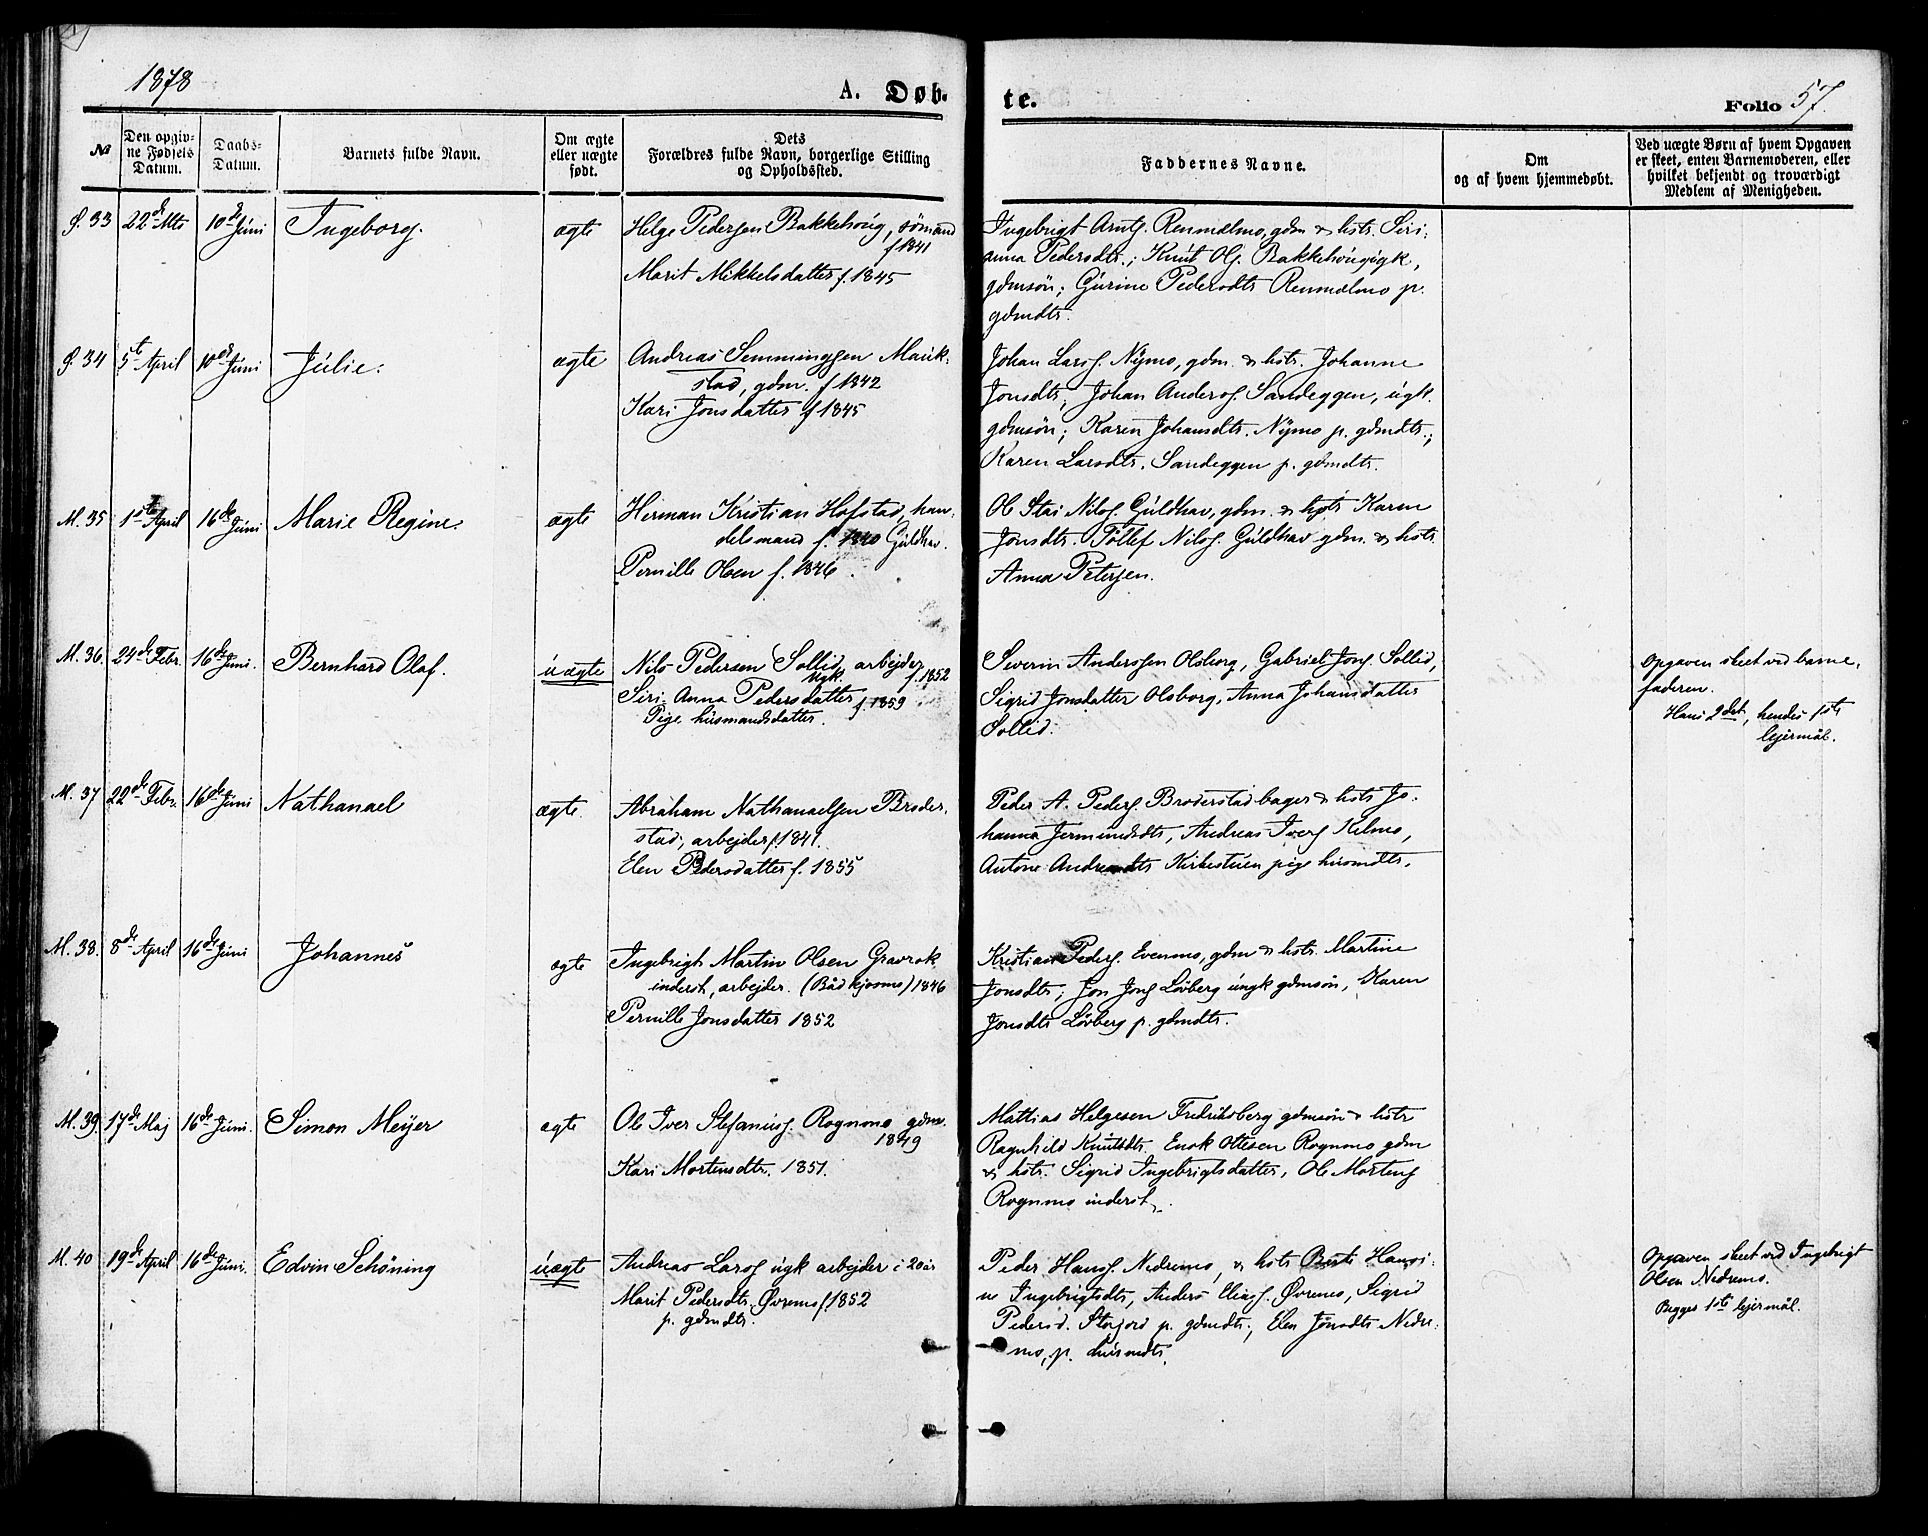 1878
A. Døb-
te.
Folio 57.
№
Den opgiv-
ne Fødsels
Datum.
Daabs-
Datum.
Barnets fulde Navn.
Om ægte
eller uægte
født.
Dets
Forældres fulde Navn, borgerlige Stilling
og Opholdssted.
Faddernes Navne.
Om
og af hvem hjemmedøbt.
Ved uægte Børn af hvem Opgaven
er skeet, enten Barnemoderen, eller
hvilket bekjendt og troværdigt
Medlem af Menigheden.
33 22de Mts 10de Júni Ingeborg. ægte
Helge Pedersen Bakkehoúg, sømand
f 1841
Marit Mikkelsdatter f. 1845
Ingebrigt Arnts. Rennælmo, gdm & hstr. Siri-
anna Pedersdtr.; Knút Ols. Bakkehoúg
gdmsøn; Gúrine Pedersdtr Rennælmo p.
gdmdtr.
34 5te April 10de Júni Júlie. ægte
Andreas Semmingsen Mauk-
stad, gdm. f 1842
Kari Jonsdatter f 1845
Johan Larss. Nÿmo, gdm. & hstr. Johanne
Jonsdtr; Johan Anders. Sandeggen, úgk.
gdmsøn; Karen Johansdtr. Nÿmo p. gdmdtr.;
Karen Larsdtr. Sandeggen p. gdmdtr.
M. 35 1ste April 16de Júni Marie Regine. ægte
Herman Kristian Hofstad, han-
delsmand f. 1840 Gúldhav.
Pernille Olsen f. 1846.
Ole Stai Nils. Gúldhav, gdm. & hstr Karen
Jonsdtr. Tollef Nils. Gúldhav gdm. & hstr.
Anna Petersen.
M. 36. 24de Febr. 16de Júni. Bernhard Olaf. úægte
Nils Pedersen Sollid, arbejder
úgk. f. 1852
Siri-Anna Pedersdatter f. 1859
Pige. húsmandsdatter.
Severin Anderssen Olsborg, Gabriel Jons. Sollid,
Sigrid Jonsdatter Olsborg, Anna Johansdatter
Sollid.
Opgaven skeet ved barne-
faderen.
Hans 2det, hendes 1ste
lejermål.
M. 37 22de Febr. 16de Júni Nathanael ægte.
Abraham Nathanaelsen Broder-
stad, arbejder f. 1841.
Elen Pedersdatter f. 1855
Peder A. Peders. Broderstad bager & hstr Jo-
hanna Jermúndsdtr, Andreas Ivers Kelmo,
Antone Andreasdtr Kirkestúen pige húsmdtr.
M. 38. 8de April 16de Júni Johannes ægte
Ingebrigt Martin Olsen Gravrok
inderst, arbejder. (Bådkjosmo) 1846
Pernille Jonsdatter 1852
Kristian Peders. Evenmo, gdm & hstr. Martine
Jonsdtr; Jon Jons Løvberg úngk gdmsøn, Karen
Jonsdtr Løvberg p. gdmdtr.
M. 39. 17de Maj 16de Júni. Simon Meÿer ægte
Ole Iver Stefaniús. Rognmo gdm.
1849
Kari Mortensdtr. 1851.
Mathias Helgesen Fredriksberg gdmsøn & hstr
Ragnhild Knútsdtr. Enok Ottesen Rognmo gdm
& hstr. Sigrid Ingebrigtsdatter, Ole Mortens
Rognmo inderst.
M. 40 19de April 16de Júni. Edvin Schöning úægte
Andreas Larss úgk arbejder i 20 år
Marit Pedersdtr. Øvremo f. 1852
p. gdmdtr.
Peder Hanss. Nedremo, & hstr Berit Hansi-
ne Ingebrigtsdtr, Anders Eliass. Øvremo, Sigrid
Pedersd. Storjord p. gdmdtr.; Elen Jónsdtr Nedre-
mo, p. húsmdtr.
Opgaven skeet ved Ingebrigt
Olsen Nedremo.
Begges 1ste lejermål.